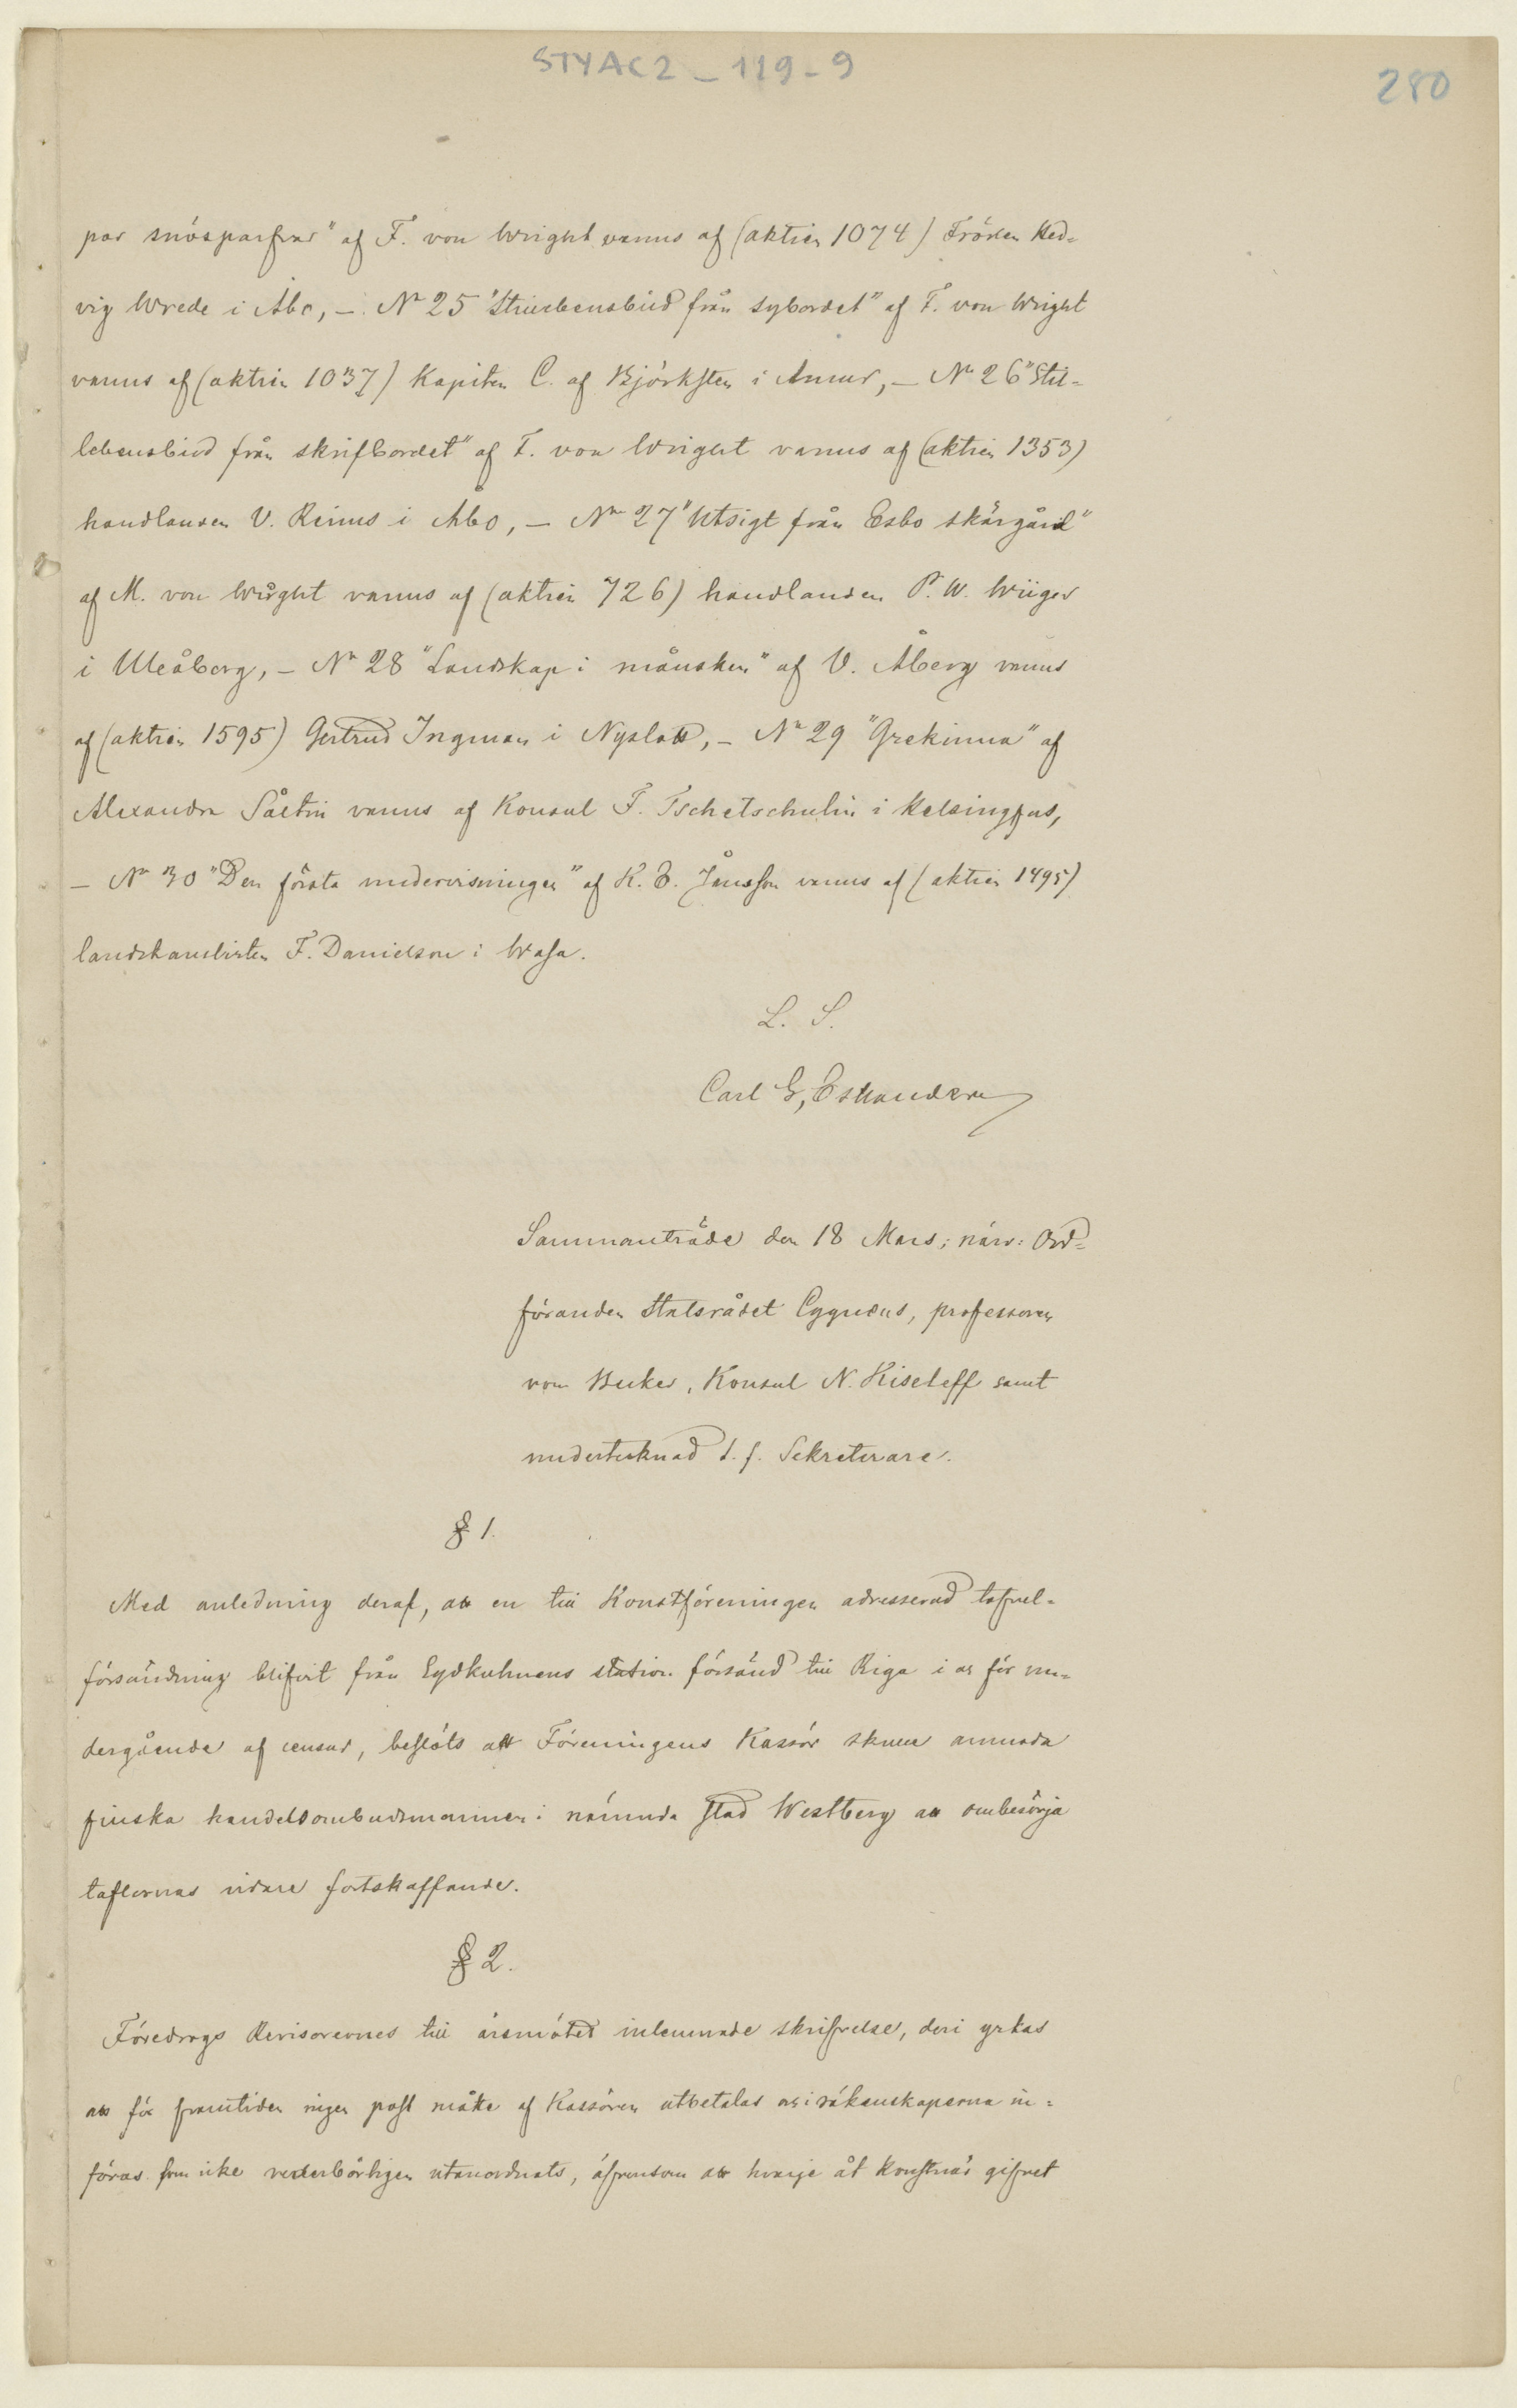 STYAC2 – 119 – 9
280
par snösparfvar" af F. von Wright vanns af (aktien 1074) Fröken Hed=
vig Wrede i Åbo, – N:r 25 "Stillebensbild från sybordet" af F. von Wright
vanns af (aktien 1037) Kapiten C. af Björksten i Amur, – N:r 26 "Stil=
lebensbild från skrifbordet" af F. von Wright vanns af (aktien 1353)
handlanden V. Renus i Åbo, – N:r 27 "Utsigt från Esbo skärgård"
af M. von Wright vanns af (aktien 726) handlanden P. W. Wiiger
i Uleåborg, – N:r 28 "Landskap i månsken" af V. Åberg vanns
af (aktien 1595) Gertrud Ingman i Nyslott, – N:r 29 "Grekinna" af
Alexandra Såltin vanns af Konsul F. Tschetschulin i Helsingfors,
– N:r 30 "Den första undervisningen" af K. E. Jansson vanns af (aktien 1495)
landskanslisten F. Danielson i Wasa.
L. S.
Carl G. Estlander
Sammanträde den 18 Mars; närv: Ord=
föranden Statsrådet Cygnæus, professoren
von Becker, Konsul N. Kiseleff samt
undertecknad t. f. Sekreterare.
§ 1.
Med anledning deraf, att en till Konstföreningen adresserad tafvel=
försändning blifvit från Eydkuhnens station försänd till Riga i och för un=
dergående af censur, beslöts att Föreningens Kassör skulle anmoda
finska handelsombudsmannen i nämnda stad Westberg att ombesörja
taflornas vidare fortskaffande.
§ 2.
Föredrogs Revisorernes till årsmötet inlemnade skrifvelse, deri yrkas
att för framtiden ingen post måtte af Kassören utbetalas och i räkenskaperna in=
föras som icke vederbörligen utanordnats, äfvensom att hvarje åt Konstnär gifvet